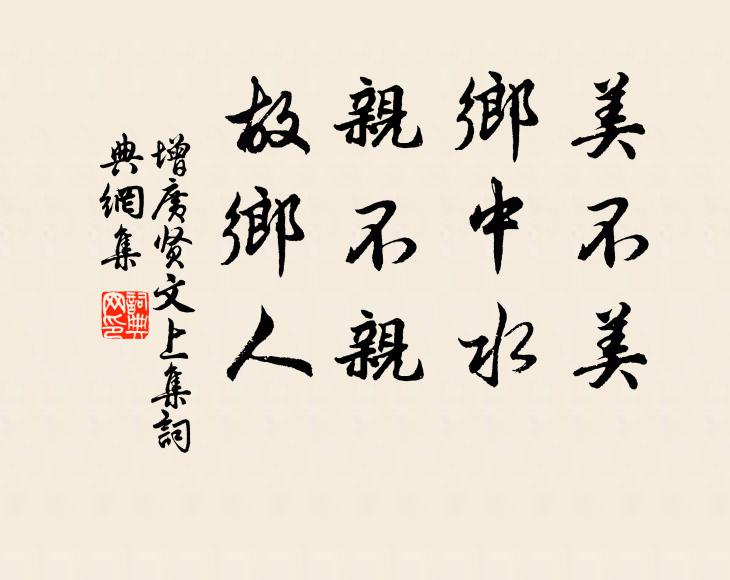 美不美
鄉中水
親不親
故鄉人
增廣贤文上集詞
典網集
詞典
网印